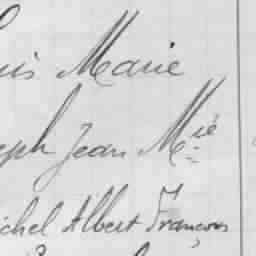 uis Marie
eph Jean M.ie
ichel Albert François